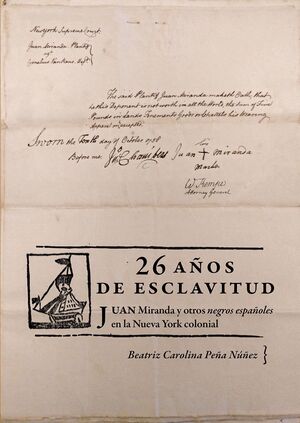 New york Supream Court.
Juan Miranda Plantif
agt
Cornelius Vanhans, Deft
The said Plantif Juan Miranda maketh Oath, that
he this Deponent is not worth in all the World, the Sum of Five
Pounds in Lands Tenements Goods or Chattles his Wearing
Aparel in excepted
Sworn the Tenth day of October 1758
Before me Jno Chambers Juan his + Miranda
Marke
W. Kempe
Attorney General
26 AÑOS
DE ESCLAVITUD
JUAN Miranda y otros negros españoles
en la Nueva York colonial
Beatriz Carolina Peña Núñez